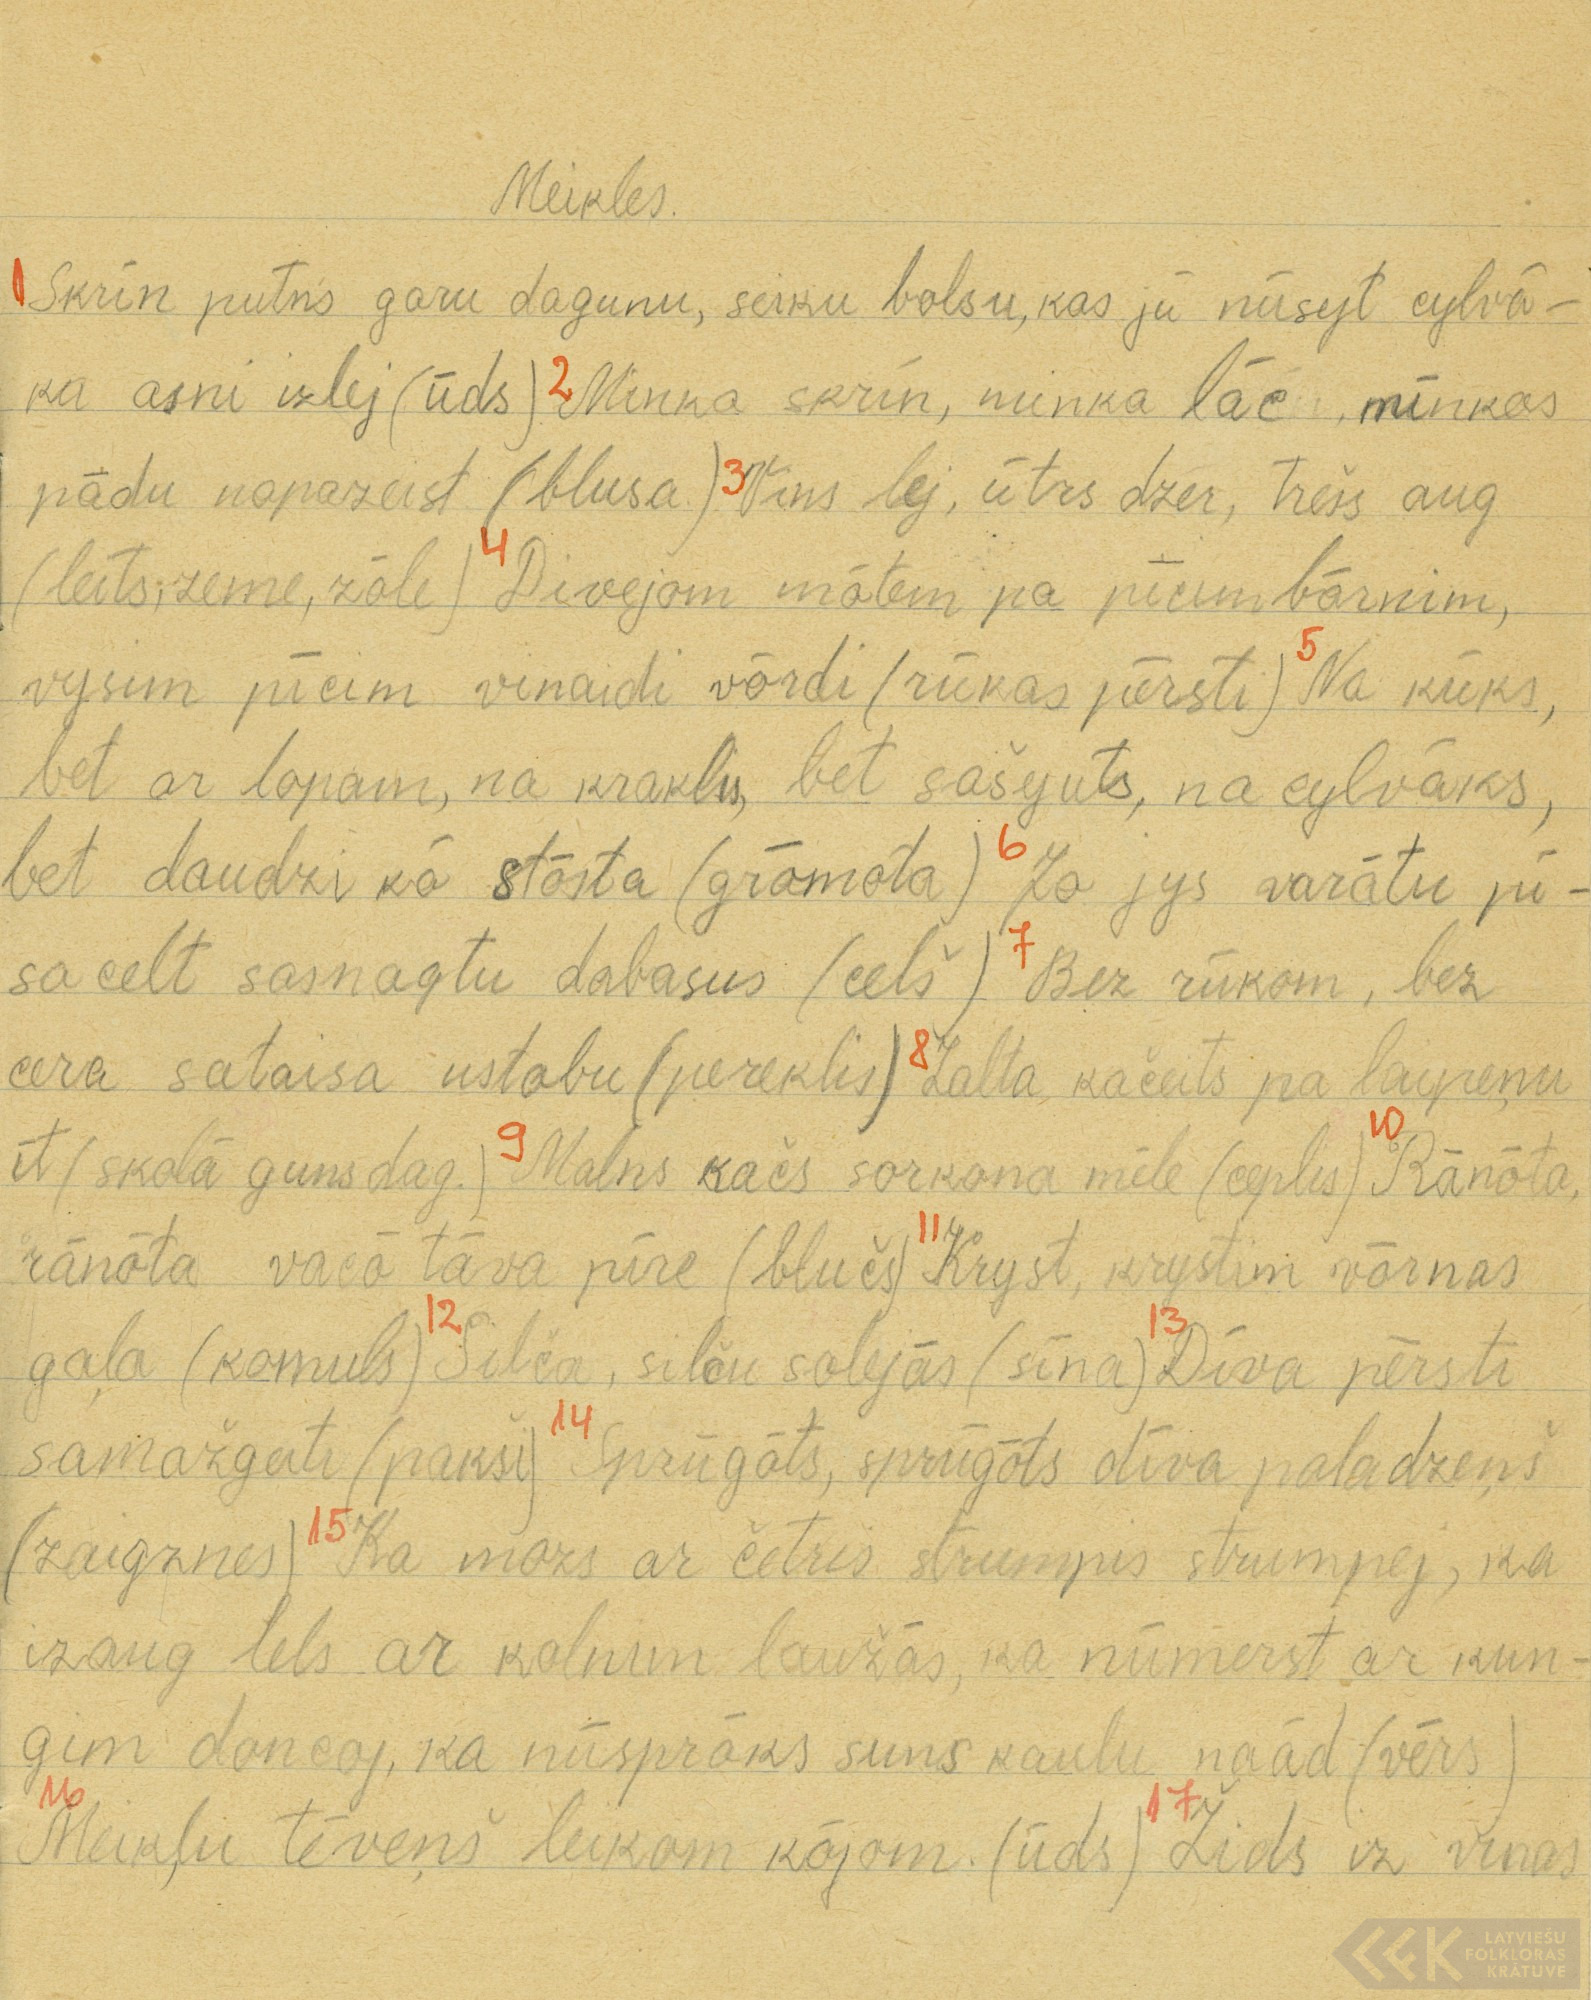 Meikles.
1 Skrīn putns garu dagunu, seiku bolsu, kas jū nūsyt cylvā-
ka asni izlej (ūds) 2 Minka skrīn, minka lāc, minkas
pādu napazeist (blusa) 3 Vīns lej, ūtrs dzer, trešs aug
(leits, zeme, zōle) 4 Divejom mōtem pa pīcim bōrnim,
vysim pīcim vinaidi vōrdi (rūkas pērsti) 5 Na kūks,
bet ar lopam, na kraklis, bet sašyuts, na cylvāks,
bet daudzi kō stōsta (grōmota) 6 Jo jys varātu pī-
sacelt sasnagtu dabasus (celš) 7 Bez rūkom, bez
cera sataisa ustobu (pereklis) 8 Zalta kačeits pa laipeņu
īt (skolā guns dag.) 9 Malns kačs sorkona mēle (ceplis) 10 Rānōta,
rānōta vacō tāva pīre (blučs) 11 Kryst, krystim vōrnas
gaļa (komuls) 12 Silča, silču solejās (sīna) 13 Dīva pērsti
samažgati (pakši) 14 Sprūgōts, sprūgōts dīva paladzeņš
(zaigznes) 15 Ka mozs ar četris strumpis strumpej, ka
izaug lels ar kolnim laužās, ka nūmerst ar kun-
gim doncoj, ka nūsprōks suns kaulu naād (vērs)
16 Meikļu tēveņš leikom kōjom. (ūds) 17 Žids iz vīnas
LATVIEŠU
FOLKLORAS
KRĀTUVE